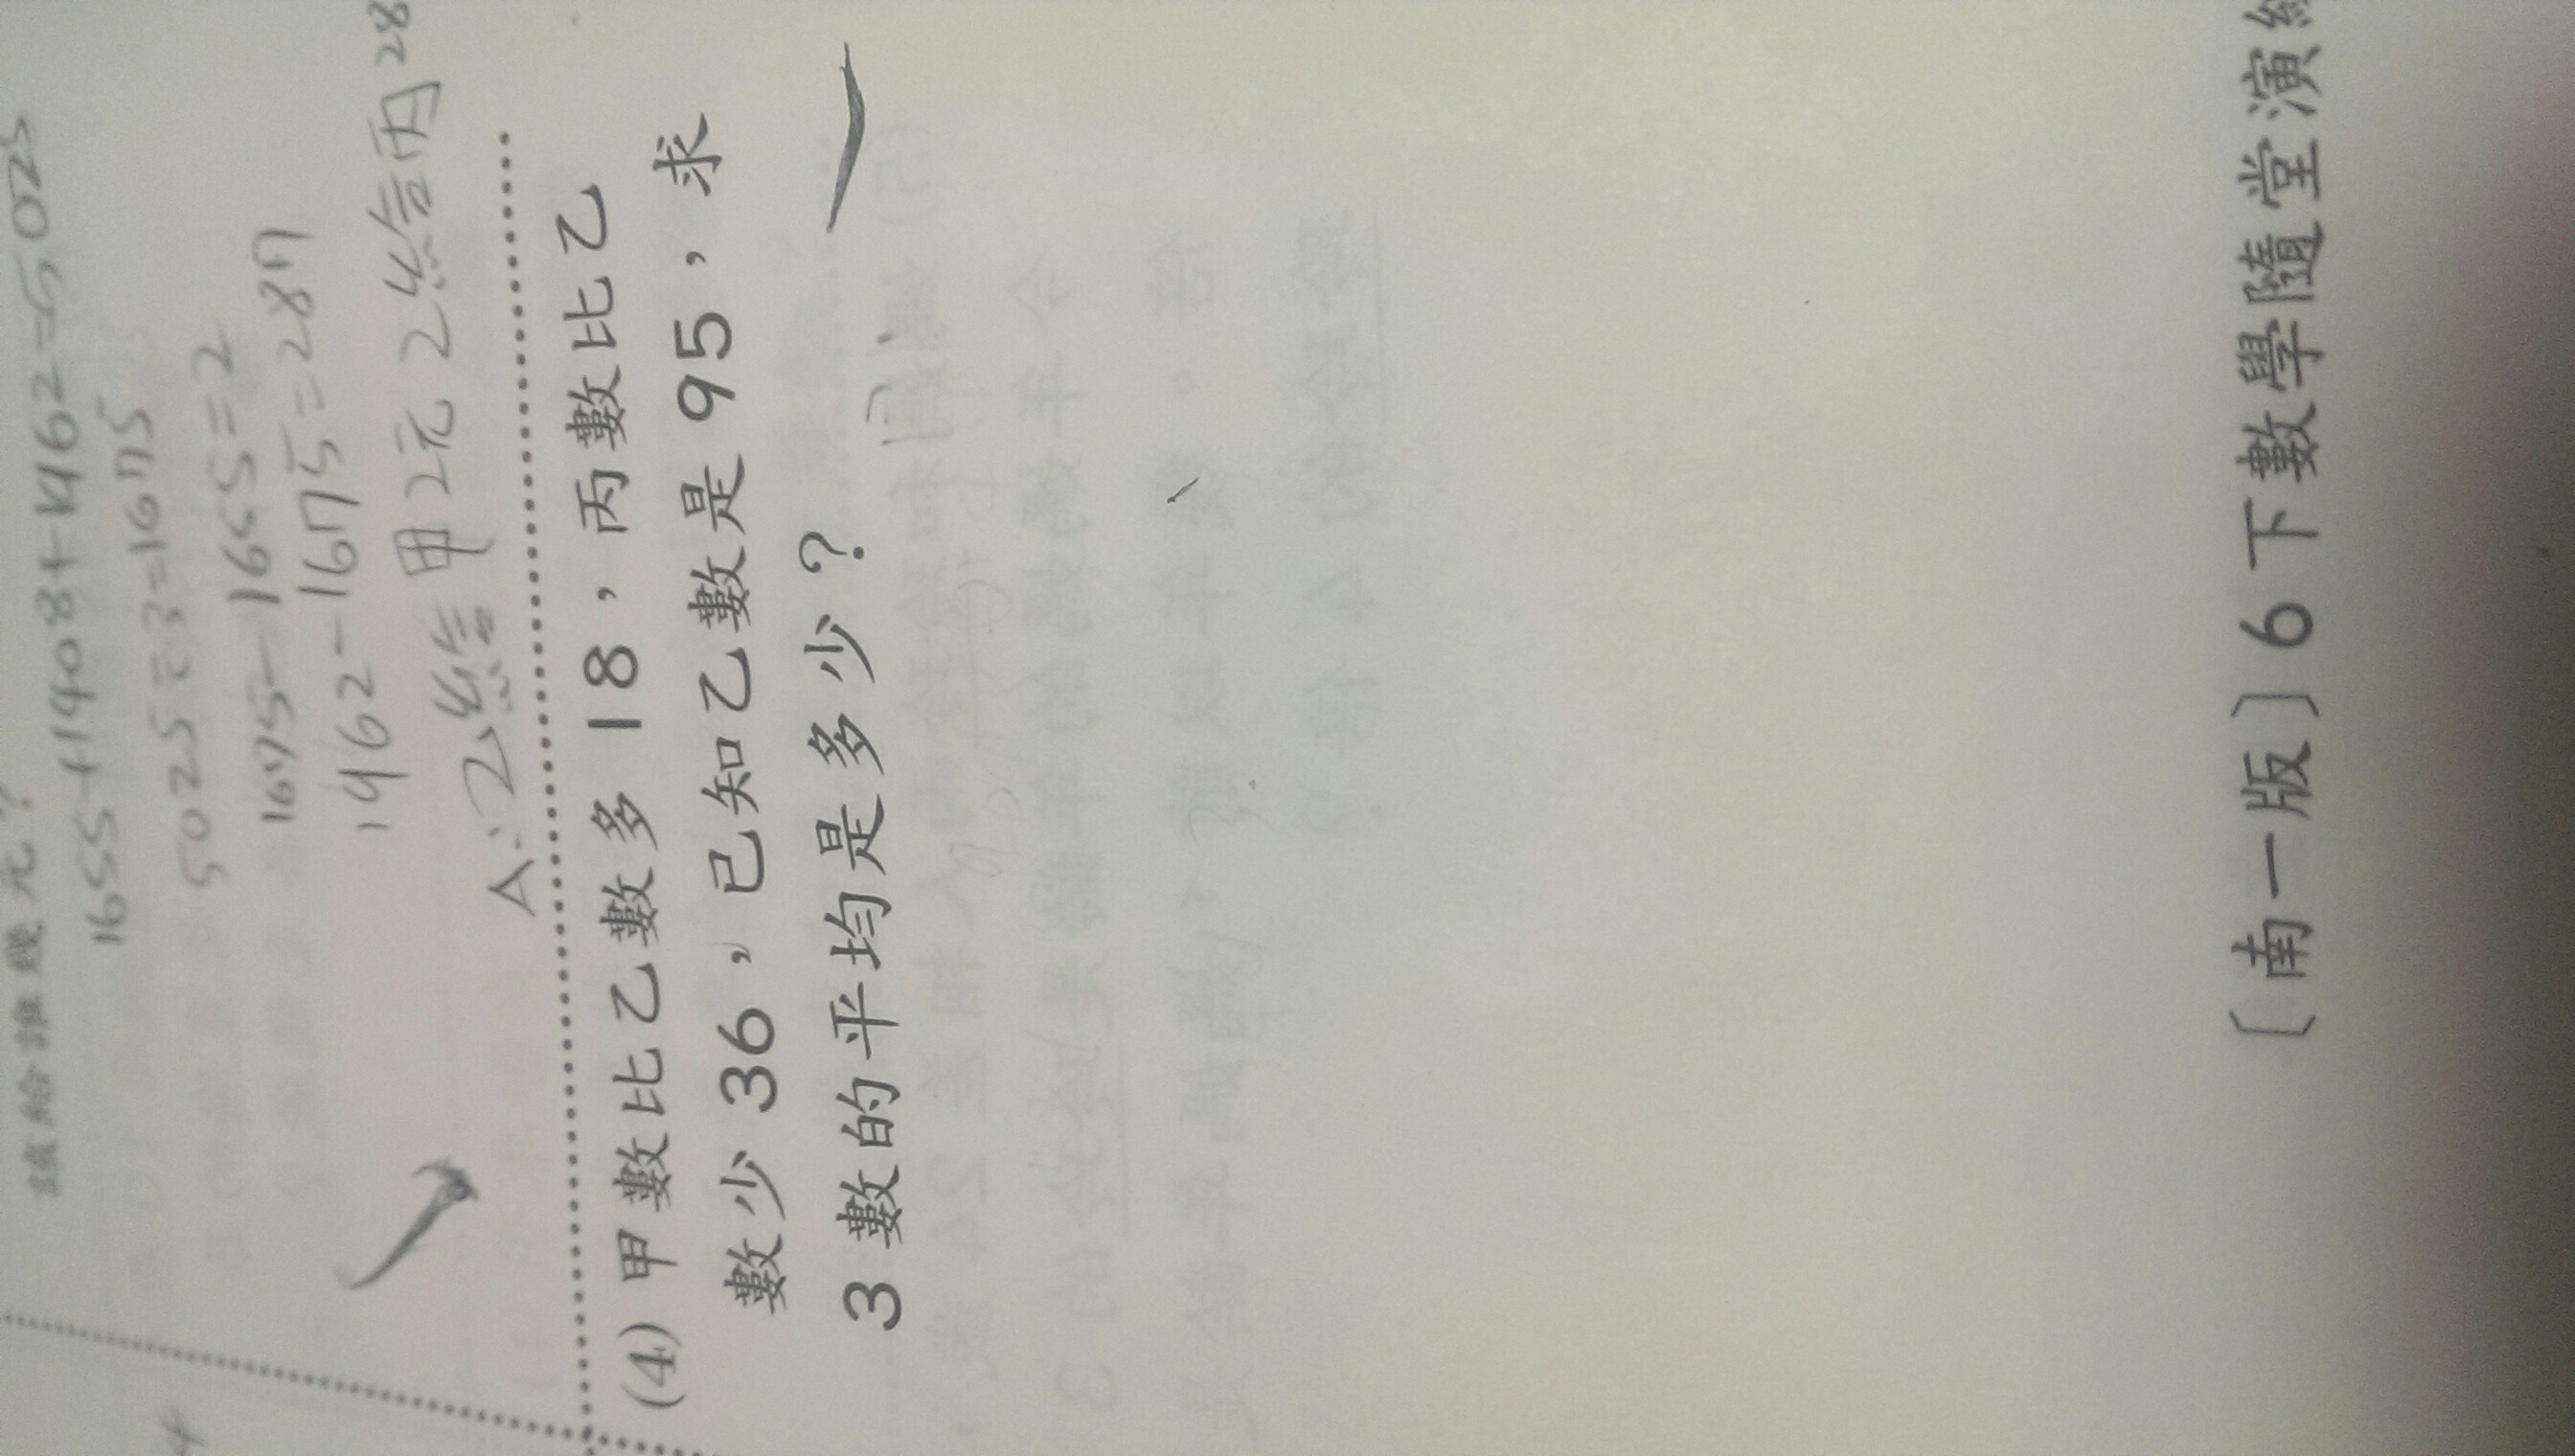 請給誰幾元？
1655+1408+1962=5025
5025÷3=1675
1675-1655=2
1962-1675=287
A:乙給甲2元 乙給丙28
(4) 甲數比乙數多 18，丙數比乙
數少 36，已知乙數是 95，求
3 數的平均是多少？
〔南一版〕6 下數學隨堂演